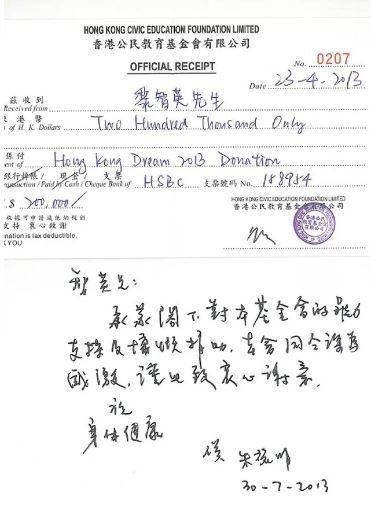 HONG KONG CIVIC EDUCATION FOUNDATION LIMITED
香港公民教育基金會有限公司
OFFICIAL RECEIPT
No. 0207
Date 23-4-2013
茲收到 黎智英先生
Received from
港幣 Two Hundred Thousand Only
of H. K. Dollars
係付 Hong Kong Dream 2013 Donation
ment of
銀行轉賬/現金/支票 HSBC 支票號碼 No. 188984
Transaction / Paid by Cash / Cheque Bank of
$ 200,000/
收據可申請減免稅
支持 衷心致謝
nation is tax deductible.
K YOU
HONG KONG CIVIC EDUCATION FOUNDATION LIMITED
香港公民教育基金會有限公司
智英兄:
承蒙閣下對本基金會的鼎力
支持及慷慨捐助,吾會同仝深為
感激,謹此致衷心謝意.
祝
身体健康
朱耀明
30-7-2013